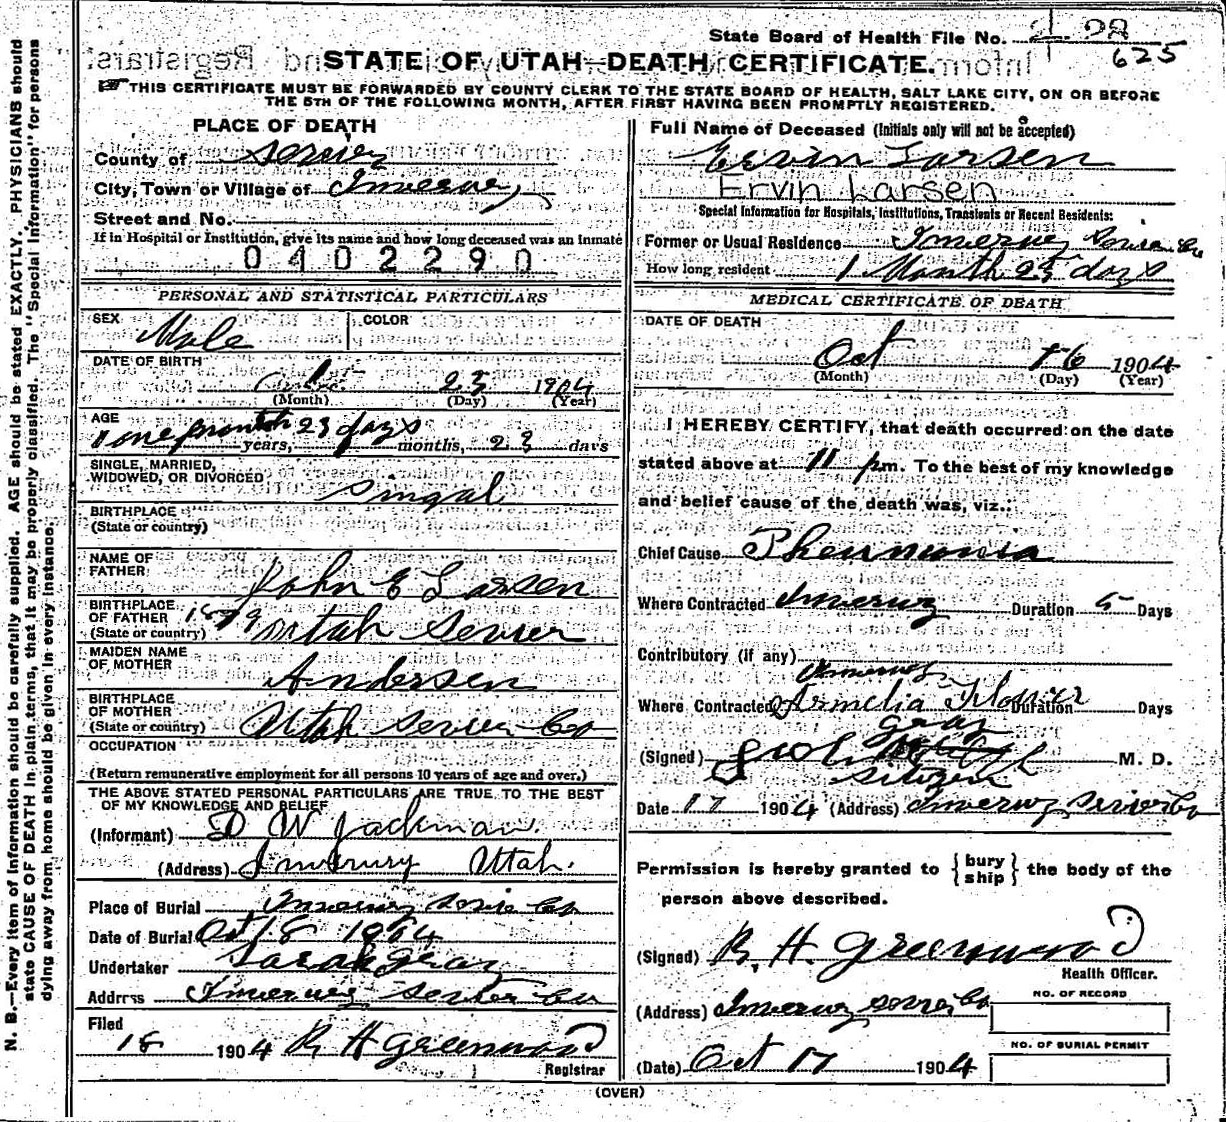 State Board of Health File No. 28
625
STATE OF UTAH—DEATH CERTIFICATE.
THIS CERTIFICATE MUST BE FORWARDED BY COUNTY CLERK TO THE STATE BOARD OF HEALTH, SALT LAKE CITY, ON OR BEFORE
THE 5TH OF THE FOLLOWING MONTH, AFTER FIRST HAVING BEEN PROMPTLY REGISTERED.
PLACE OF DEATH
County of
City, Town or Village of
Street and No.
If in Hospital or Institution, give its name and how long deceased was an inmate
0402290
PERSONAL AND STATISTICAL PARTICULARS
SEX Male COLOR
DATE OF BIRTH
23 1904
(Month) (Day) (Year)
AGE
1 one month 23 days
years, months, 23 days
SINGLE, MARRIED,
WIDOWED, OR DIVORCED singal
BIRTHPLACE
(State or country)
NAME OF
FATHER John E Larsen
BIRTHPLACE
OF FATHER
(State or country) 1879 Utah Sevier
MAIDEN NAME
OF MOTHER Andersen
BIRTHPLACE
OF MOTHER
(State or country) Utah Sevier Co
OCCUPATION
(Return remunerative employment for all persons 10 years of age and over.)
THE ABOVE STATED PERSONAL PARTICULARS ARE TRUE TO THE BEST
OF MY KNOWLEDGE AND BELIEF
(Informant) D W Jackman
(Address) Utah.
Place of Burial
Date of Burial Oct 18 1904
Undertaker Sarah Gray
Address Sevier Co
Filed
18 1904 R H Greenwood
Registrar
Full Name of Deceased (Initials only will not be accepted)
Ervin Larsen
Ervin Larsen
Special Information for Hospitals, Institutions, Transients or Recent Residents:
Former or Usual Residence
How long resident 1 Month 23 days
MEDICAL CERTIFICATE OF DEATH
DATE OF DEATH
Oct 16 1904
(Month) (Day) (Year)
I HEREBY CERTIFY, that death occurred on the date
stated above at 11 pm. To the best of my knowledge
and belief cause of the death was, viz.:
Chief Cause Pheumonia
Where Contracted Duration 5 Days
Contributory (if any)
Where Contracted Duration Days
(Signed) M. D.
sitizen
Date 17 1904 (Address)
Permission is hereby granted to { bury ship } the body of the
person above described.
(Signed) R. H. Greenwood
Health Officer.
(Address)
NO. OF RECORD
NO. OF BURIAL PERMIT
(Date) Oct 17 1904
(OVER)
N. B.—Every item of information should be carefully supplied. AGE should be stated EXACTLY. PHYSICIANS should
state CAUSE OF DEATH in plain terms, that it may be properly classified. The "Special Information" for persons
dying away from home should be given in every instance.